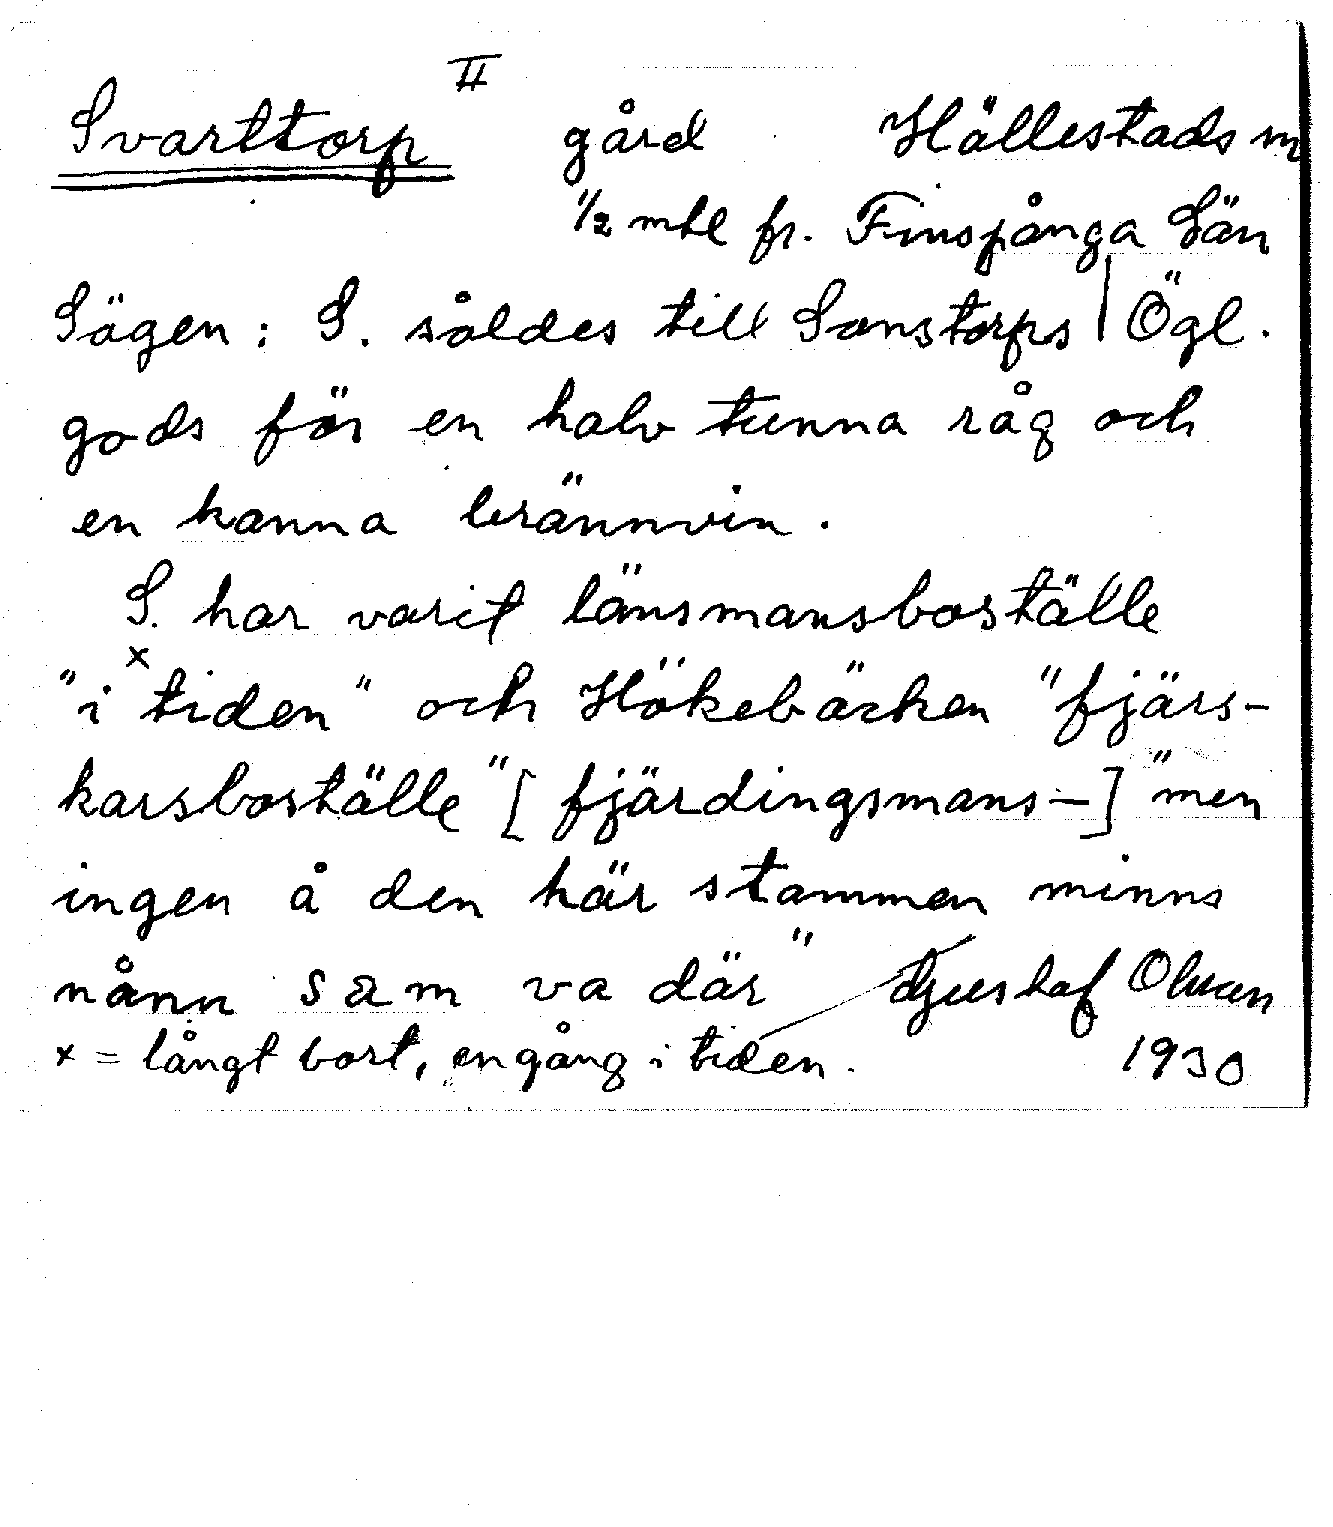 II
Svarttorp gård Hällestads sn
1/2 mtl fr. Finspånga Län
Sägen: S. såldes till Sonstorps | Ögl.
gods för en halv tunna råg och
en kanna brännvin.
S. har varit länsmansboställe
"i ˣtiden" och Hökebäcken "fjärs-
karsboställe" [fjärdingsmans-] "men
ingen å den här stammen minns
nånn sam va där" Gustaf Olsson
x = långt bort, en gång i tiden. 1930